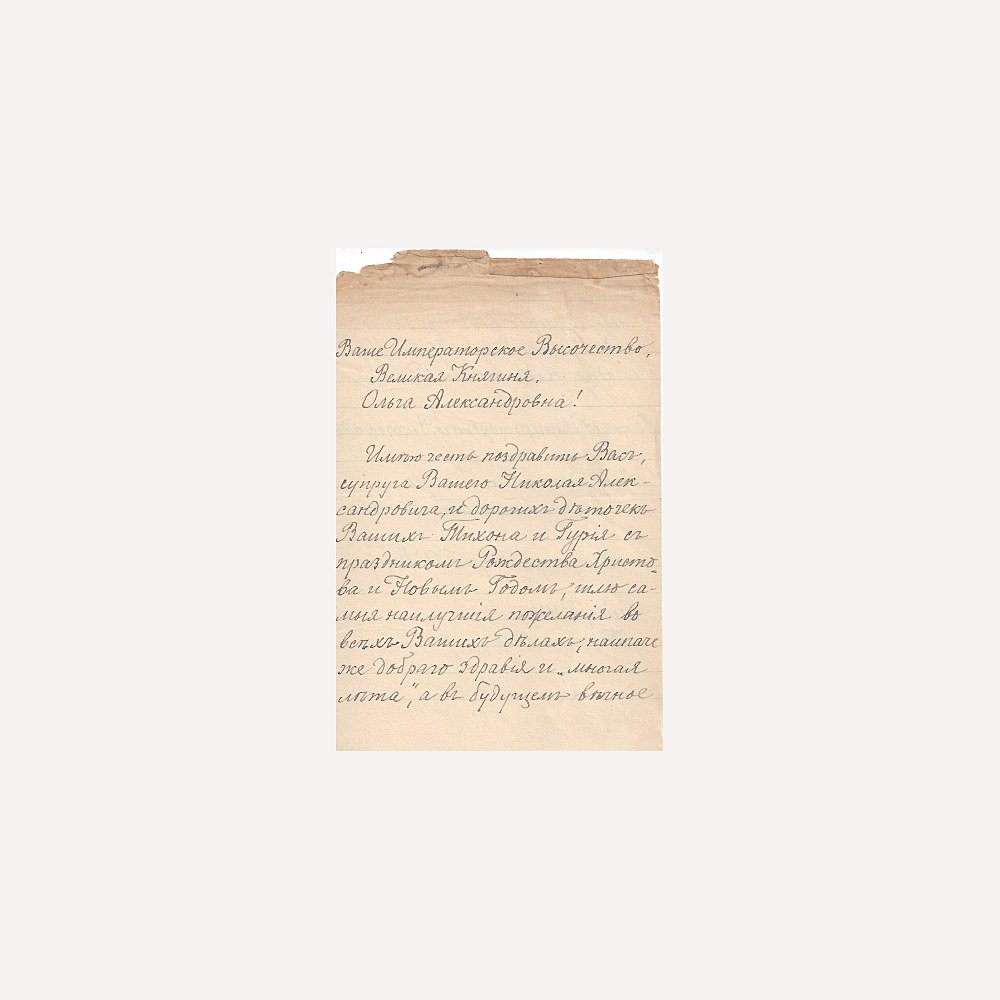 Ваше Императорское Высочество,
Великая Княгиня,
Ольга Александровна!
Имѣю честь поздравить Васъ,
супруга Вашего Николая Алек-
сандровича, и дорогихъ дѣточекъ
Вашихъ Тихона и Гурія съ
праздникомъ Рождества Христо-
ва и Новымъ Годомъ, шлю са-
мыя наилучшія пожеланія во
всѣхъ Вашихъ дѣлахъ, наипаче
же добраго здравія и „многая
лѣта", а въ будущемъ вѣчное